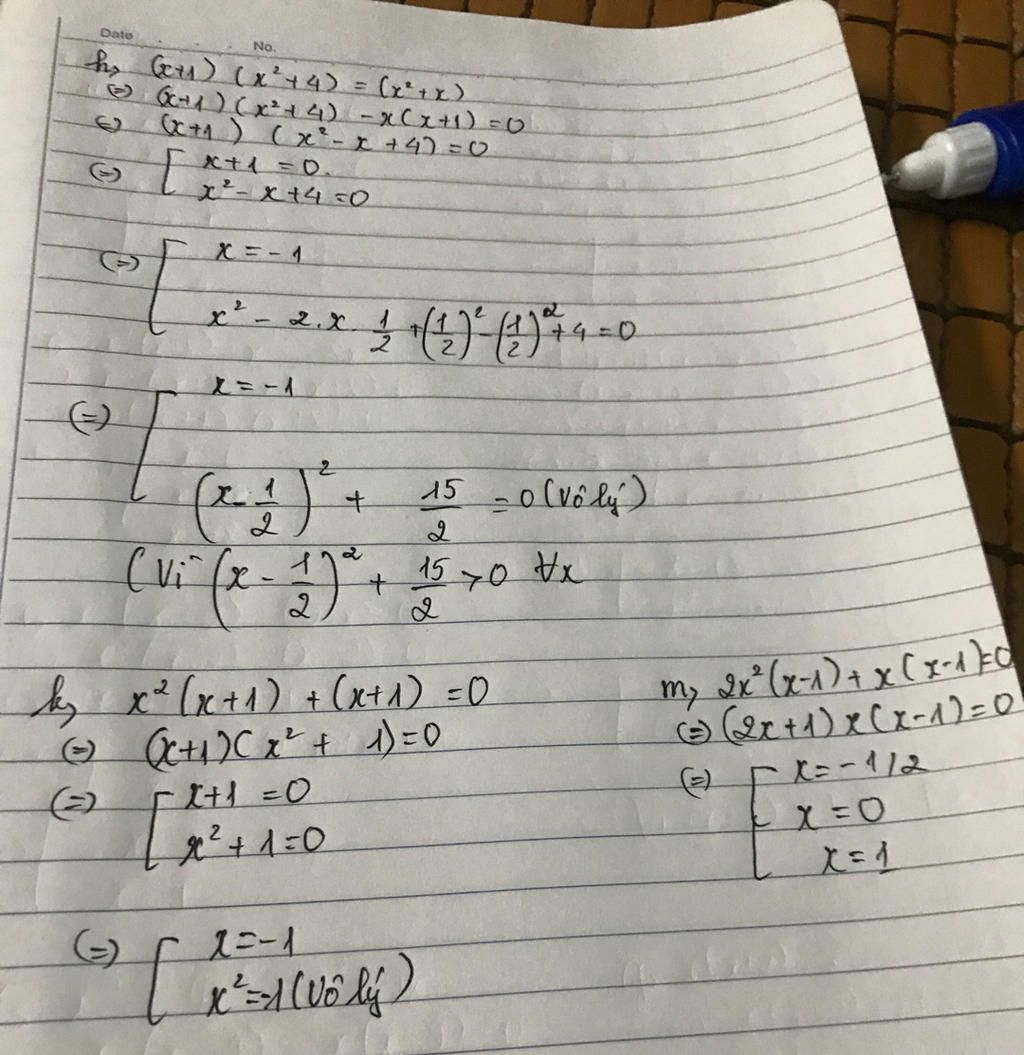 Date . . . . No.
h, (x+1) (x² + 4) = (x² + x)
(=) (x+1) (x² + 4) - x(x+1) = 0
(=) (x+1) (x² - x + 4) = 0
(=) [ x+1 = 0.
x² - x + 4 = 0
(=) [ x = -1
x² - 2.x. 1/2 + (1/2)² - (1/2)² + 4 = 0
(=) [ x = -1
(x - 1/2)² + 15/2 = 0 (Vô lý)
(Vì (x - 1/2)² + 15/2 > 0 ∀x
k, x² (x+1) + (x+1) = 0
(=) (x+1)(x² + 1) = 0
(=) [ x+1 = 0
x² + 1 = 0
(=) [ x = -1
x² = -1 (Vô lý)
m, 2x² (x-1) + x(x-1)=0
(=) (2x+1)x(x-1)=0
(=) [ x = -1/2
x = 0
x = 1